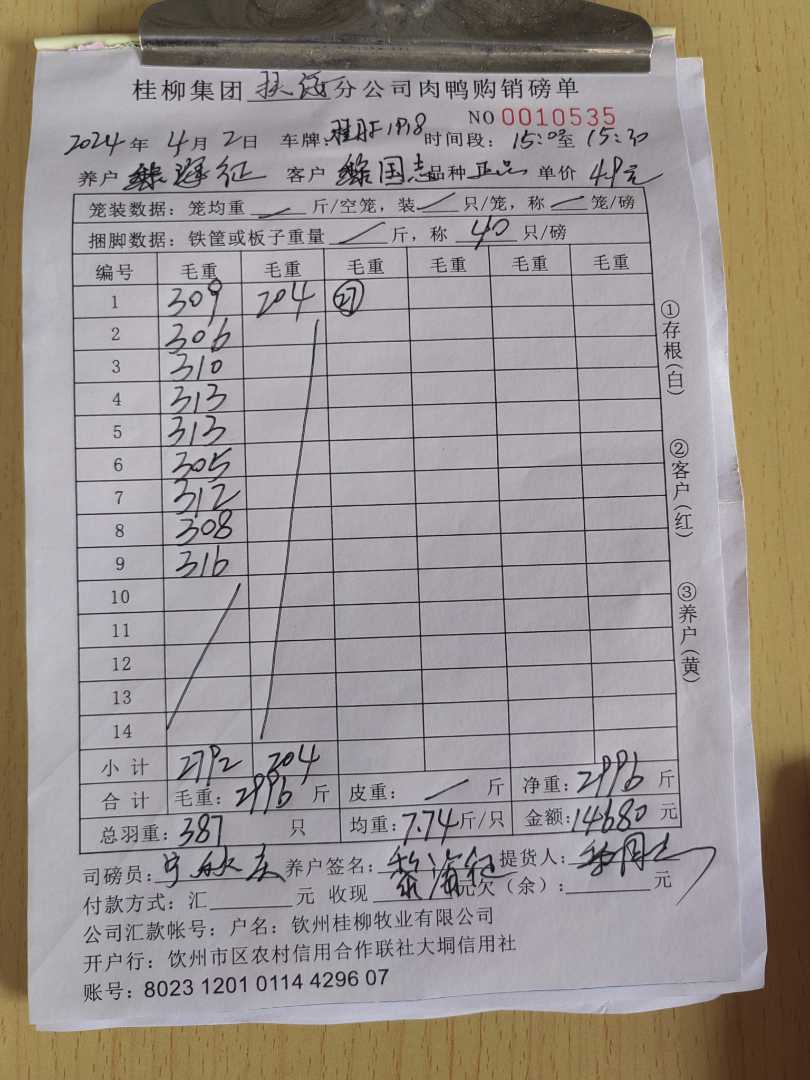 桂柳集团 分公司肉鸭购销磅单
NO 0010535
2024年4月2日 车牌: 1918 时间段: 15:0至15:30
养户 海征 客户 国志 品种 正品 单价 4.9元
笼装数据: 笼均重 / 斤/空笼, 装 / 只/笼, 称 / 笼/磅
捆脚数据: 铁筐或板子重量 / 斤, 称 40 只/磅
编号 毛重 毛重 毛重 毛重 毛重 毛重
1 309 204 27
2 306
3 310
4 313
5 313
6 305
7 312
8 308
9 316
10
11
12
13
14
小计 2792 204
合计 毛重: 2996 斤 皮重: / 斤 净重: 2996 斤
总羽重: 387 只 均重: 7.74斤/只 金额: 14680 元
司磅员: 养户签名: 黎海征 提货人:
付款方式: 汇 元 收现 元欠(余): 元
公司汇款帐号: 户名: 钦州桂柳牧业有限公司
开户行: 钦州市区农村信用合作联社大垌信用社
账号: 8023 1201 0114 4296 07
①存根(白)
②客户(红)
③养户(黄)